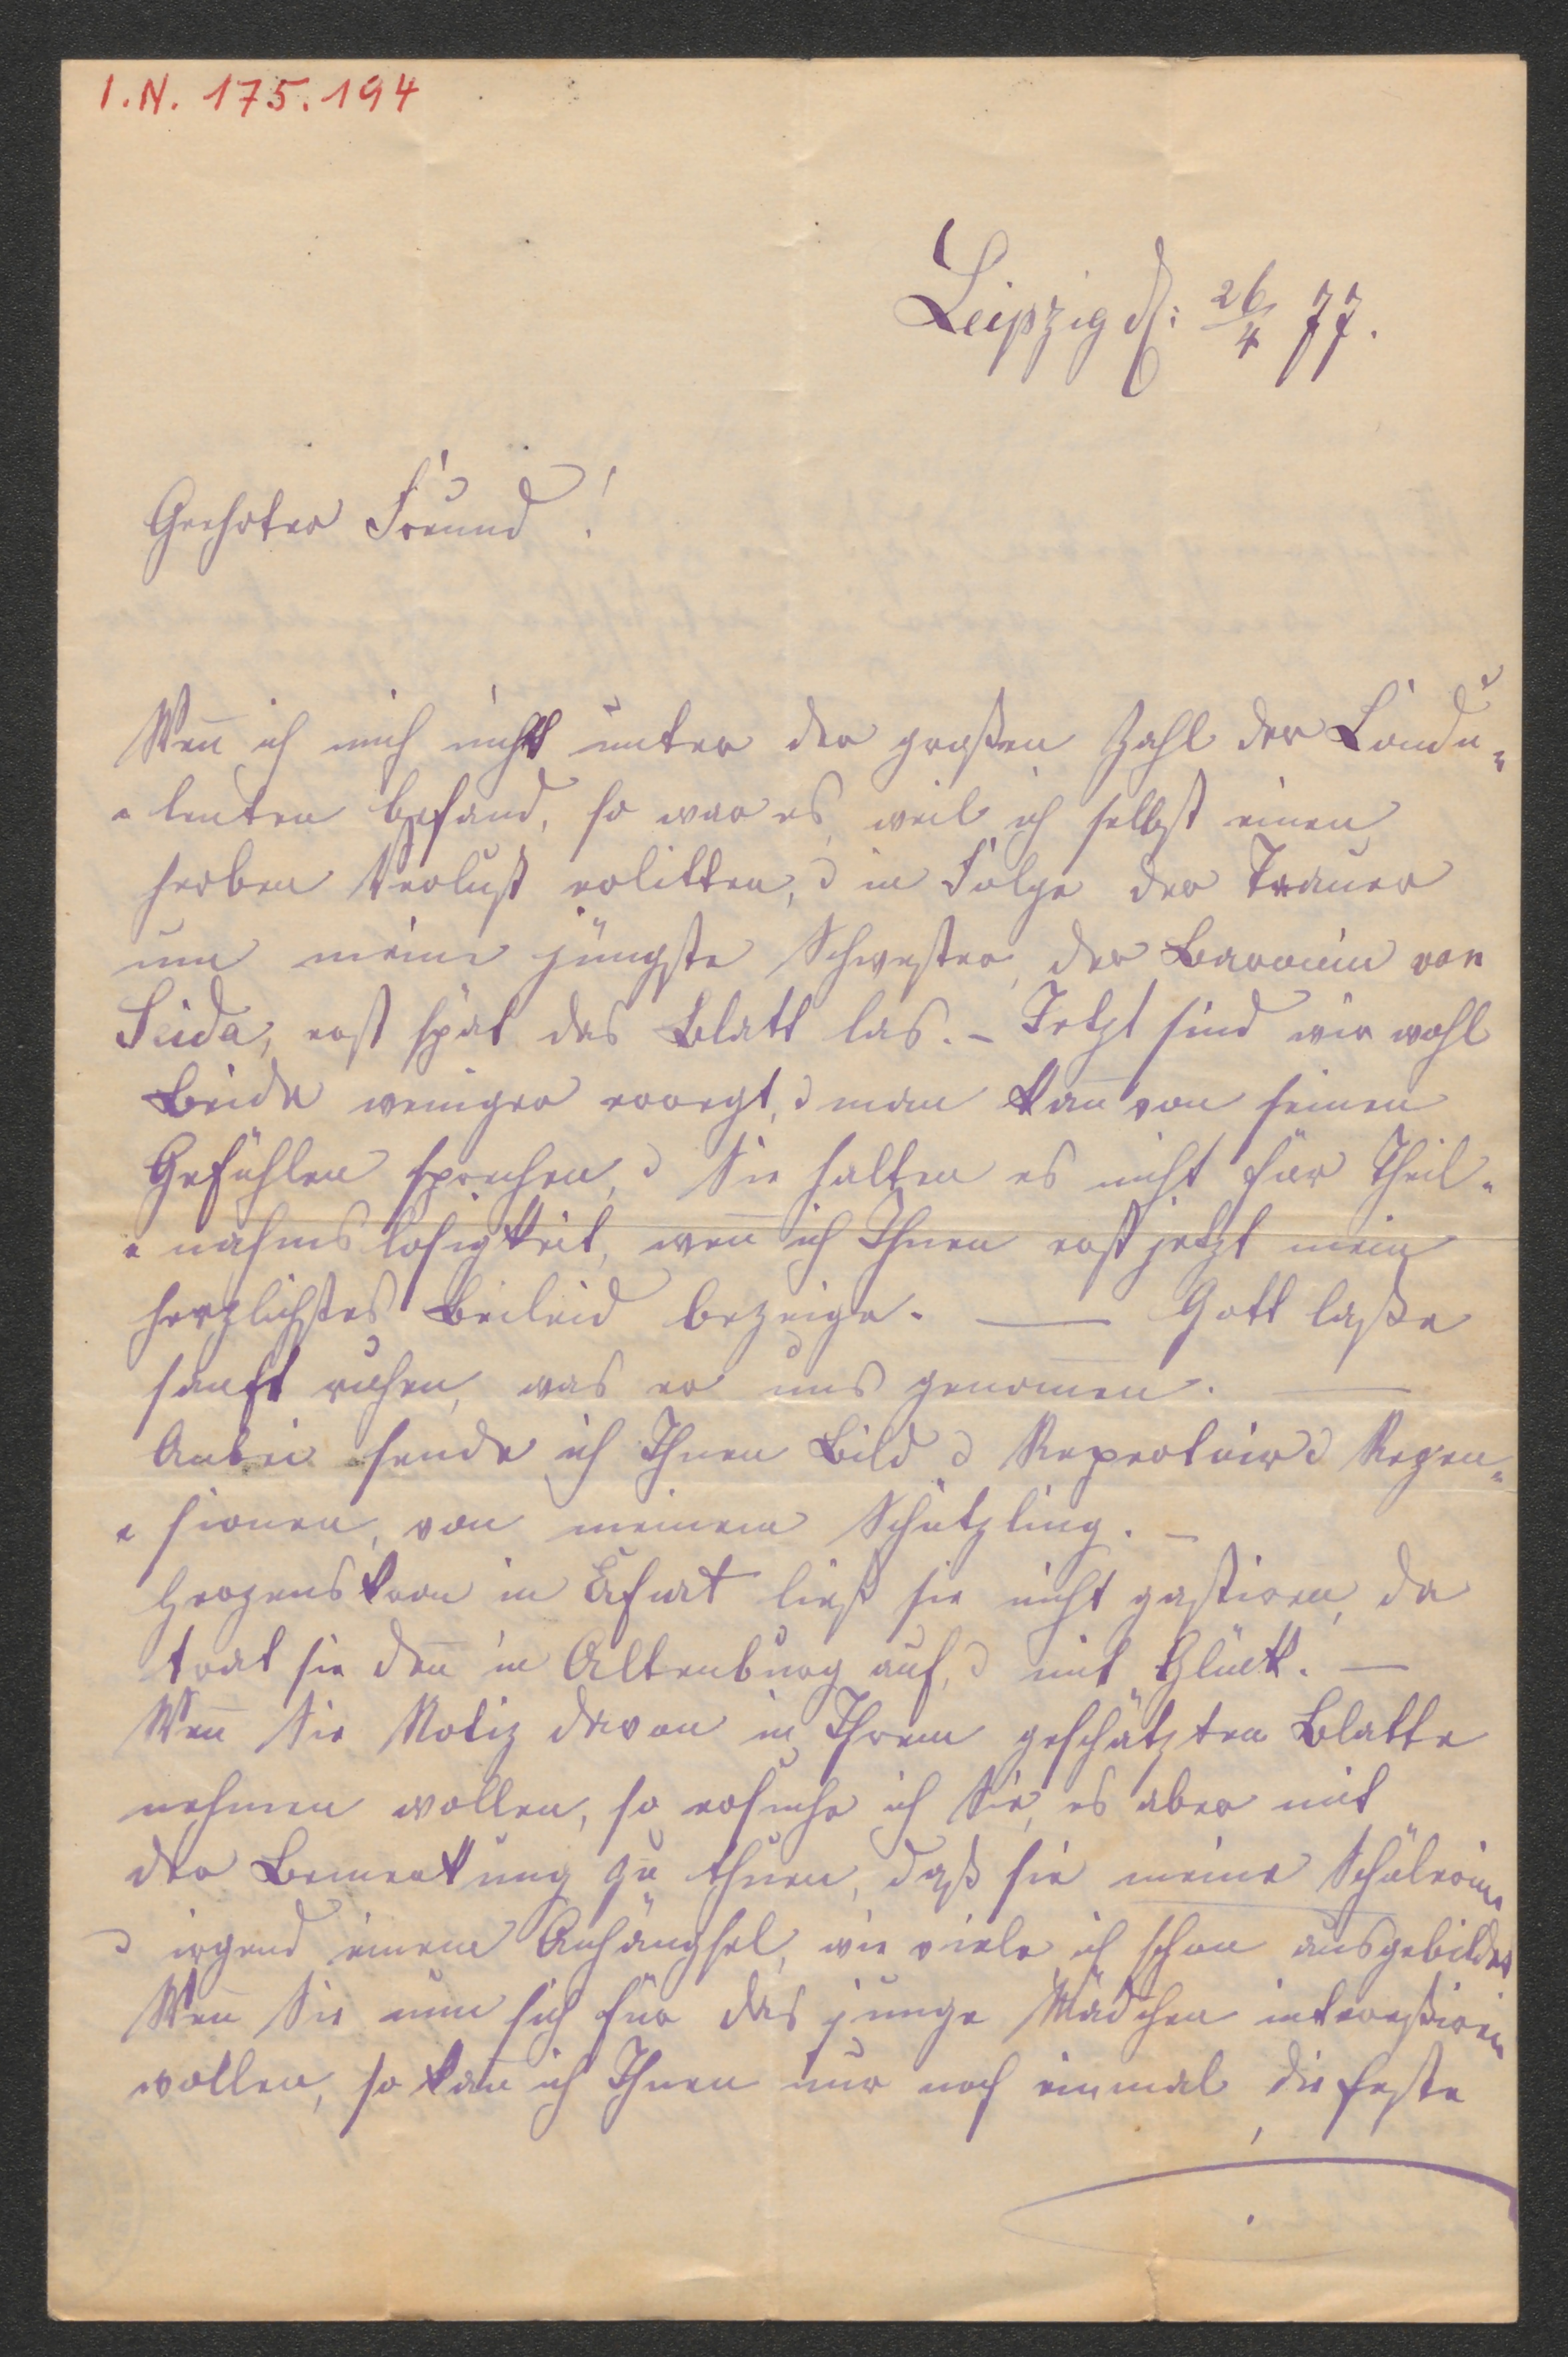 I.N. 175.194
Leipzig d: 26/4 77.
Geehrter Freund!
Weñ ich mich nicht unter der großen Zahl der Condu„
„lenten befand, so war es, weil ich selbst einen
herben Verlust erlitten, & in Folge der Trauer
um meine jüngste Schwester, der Baronin von
Seida, erst spät das Blatt las. – Jetzt sind wir wohl
Beide weniger erregt, & man kañ von seinen
Gefühlen sprechen, & Sie halten es nicht für Theil„
„nahmslosigkeit, weñ ich Ihnen erst jetzt mein
herzlichstes Beileid bezeige. — Gott laße
sanft ruhen, was er uns genom̄en. —
Anbei sende ich Ihnen Bild & Repertoir & Rezen„
„sionen, von meinem Schützling. –
Herzenskron in Erfurt ließ sie nicht gastiren, da
trat sie deñ in Altenburg auf, & mit Glück. —
Weñ Sie Notiz davon in Ihrem geschätzten Blatte
nehmen wollen, so ersuche ich Sie, es aber mit
der Bemerkung zu thuen, daß sie meine Schülerin,
& irgend einem Anhängsel, wie viele ich schon ausgebildet
Weñ Sie nun sich für das junge Mädchen intereßiren
wollen, so kañ ich Ihnen nur noch einmal die feste